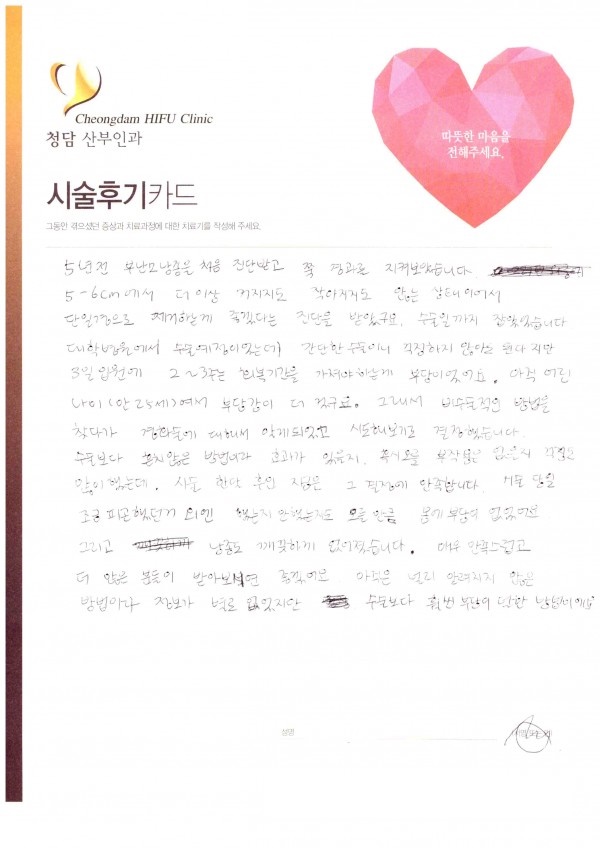 Cheongdam HIFU Clinic
청담 산부인과
따뜻한 마음을
전해주세요.
시술후기카드
그동안 겪으셨던 증상과 치료과정에 대한 치료기를 작성해 주세요.
5년전 부난소낭종을 처음 진단받고 쭉 경과로 지켜보았습니다.
5-6cm에서 더이상 커지지도 작아지지도 않는 상태여서
단일경으로 제거하는게 좋겠다는 진단을 받았구요, 수술일까지 잡았었습니다
대학병원에서 수술예정이었는데 간단한 수술이니 걱정하지 않아도 된다지만
3일입원에 2~3주는 회복기간을 가져야하는게 부담이었어요. 아직 어린
나이(만25세)여서 부담감이 더 컸구요. 그래서 비수술적인 방법을
찾다가 경화술에 대해서 알게되었고 시도해보기로 결정했습니다.
수술보다 흔치않은 방법이라 효과가 있을지, 혹시모를 부작용은 없을지 걱정은
많이했는데, 시술 한달 후인 지금은 그 결정에 만족합니다. 시술 당일
조금 피곤했던거 외엔 했는지 안했는지도 모를만큼 몸에 부담이 없었어요
그리고 낭종도 깨끗하게 없어졌습니다. 매우 만족스럽고
더 많은 분들이 받아보시면 좋겠어요 아직은 널리 알려지지 않은
방법이라 정보가 별로 없었지만 수술보다 훨씬 부담이 덜한 방법이에요
성명